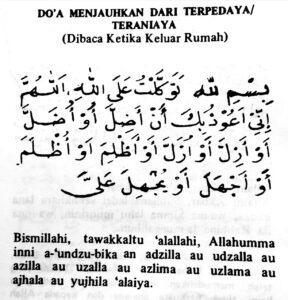 DO'A MENJAUHKAN DARI TERPEDAYA/
TERANIAYA
(Dibaca Ketika Keluar Rumah)
بِسْمِ لله تَوَكَّلْتُ عَلَى اللهِ، اَللّٰهُمَّ
اِنِّيْ اَعُوْذُبِكَ اَنْ اَضِلَّ اَوْ اُضَلَّ
اَوْ اَزِلَّ اَوْ اُزَلَّ اَوْ اَظْلِمَ اَوْ اُظْلَمَ
اَوْ اَجْهَلَ اَوْ يُجْهَلَ عَلَيَّ
Bismillahi, tawakkaltu 'alallahi, Allahumma
inni a-'undzu-bika an adzilla au udzalla au
azilla au uzalla au azlima au uzlama au
ajhala au yujhila 'alaiya.